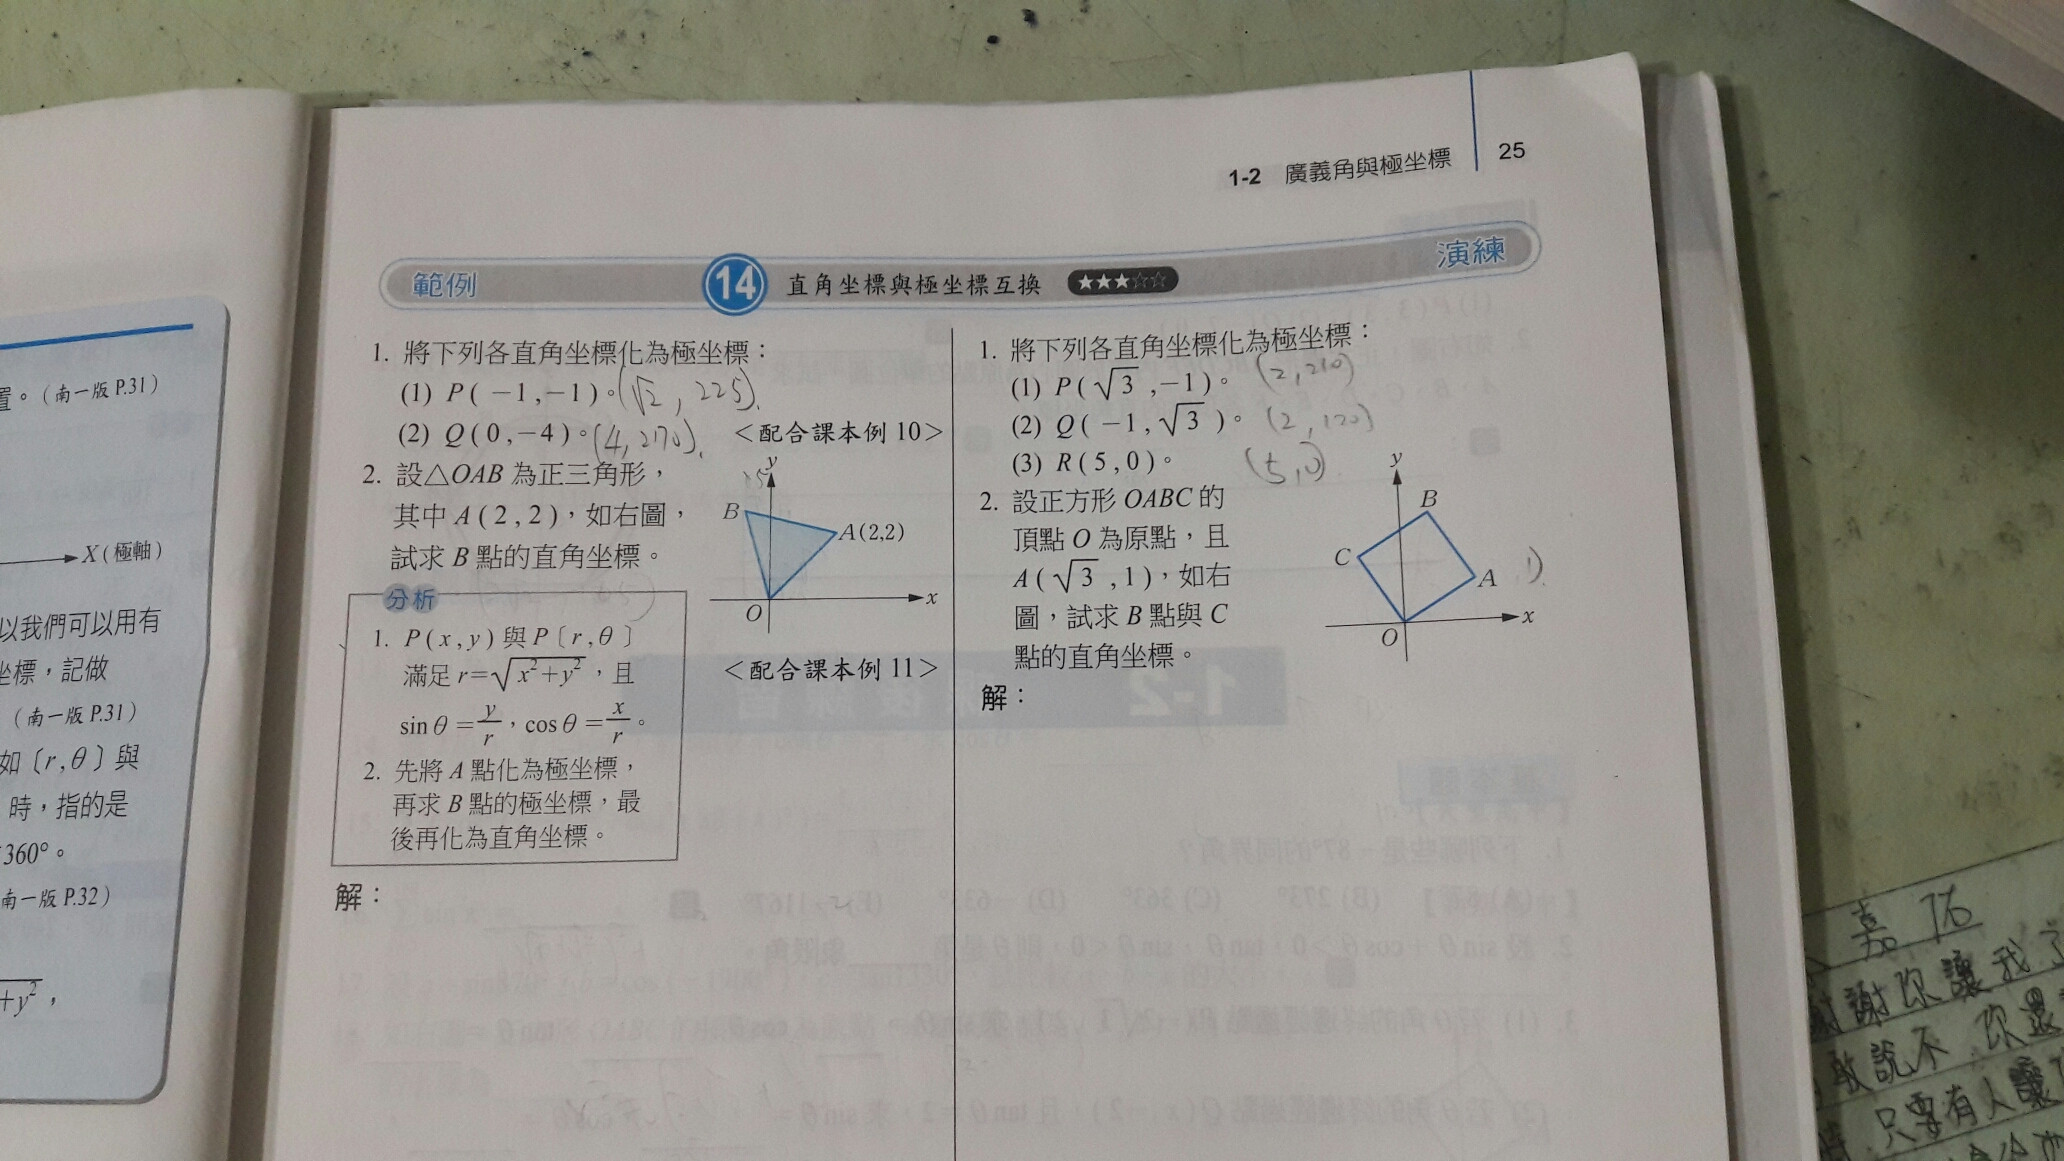 1-2 廣義角與極坐標 25
範例 14 直角坐標與極坐標互換 ★★★☆☆ 演練
置。(南一版 P.31)
X(極軸)
以我們可以用有
坐標,記做
(南一版 P.31)
如〔r,θ〕與
時,指的是
360°。
南一版 P.32)
+y²,
1. 將下列各直角坐標化為極坐標:
(1) P(-1,-1)。(√2, 225).
(2) Q(0,-4)。(4, 270). <配合課本例 10>
2. 設△OAB 為正三角形,
其中 A(2,2),如右圖,
試求 B 點的直角坐標。
y
B
A(2,2)
O
x
<配合課本例 11>
分析
1. P(x,y)與P〔r,θ〕
滿足 r=√x²+y²,且
sinθ=y/r,cosθ=x/r。
2. 先將 A 點化為極坐標,
再求 B 點的極坐標,最
後再化為直角坐標。
解:
1. 將下列各直角坐標化為極坐標:
(1) P(√3,-1)。 (2, 210)
(2) Q(-1,√3)。 (2, 120)
(3) R(5,0)。 (5,0)
2. 設正方形 OABC 的
頂點 O 為原點,且
A(√3,1),如右
圖,試求 B 點與 C
點的直角坐標。
y
B
C
A
O
x
解:
嘉
謝你讓我
敢說不 你還
只要有人讓